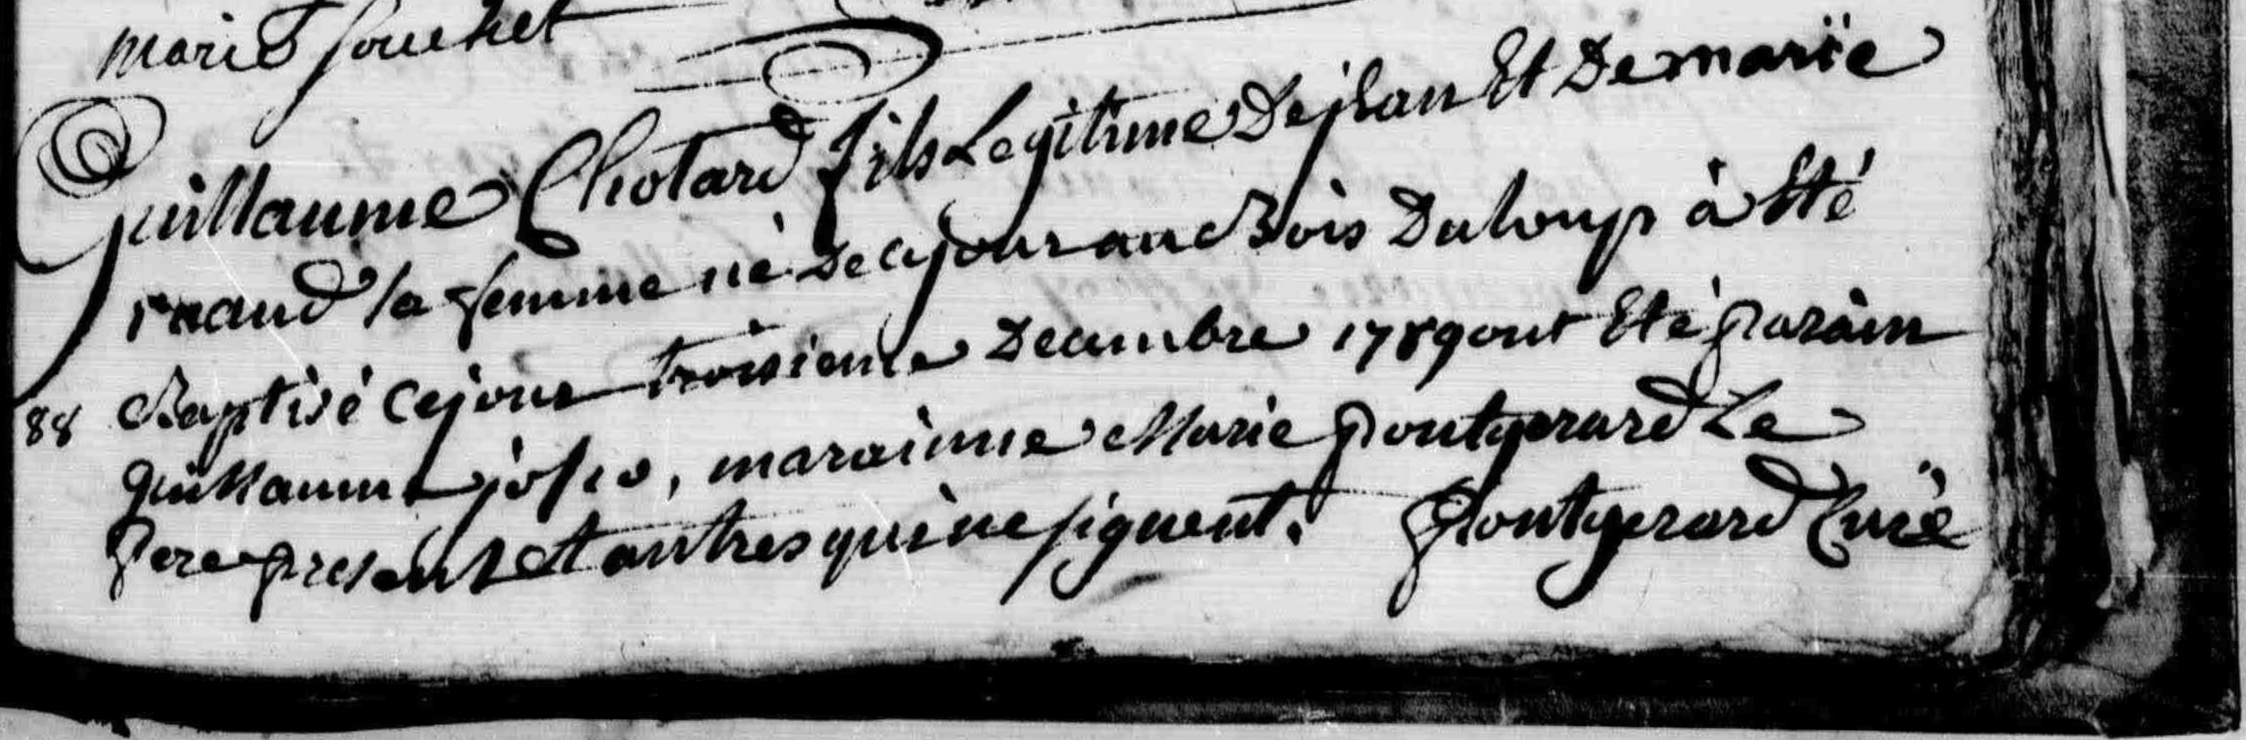 marie Souchet
Guillaume Chotard fils Legitime De jean Et De marie
sa femme né De ce jour au Bois Du loup à Eté
88 Baptisé ce jour troisieme Decembre 1789 ont Eté parain
guillaume, marainne Marie pontgerard Le
pere present et autres qui ne signent. Pontgerard Curé